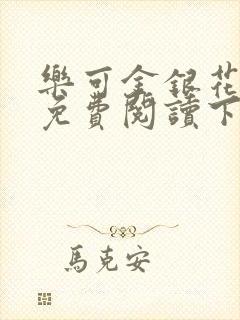 樂可金銀花
免費閱讀下
馬克安